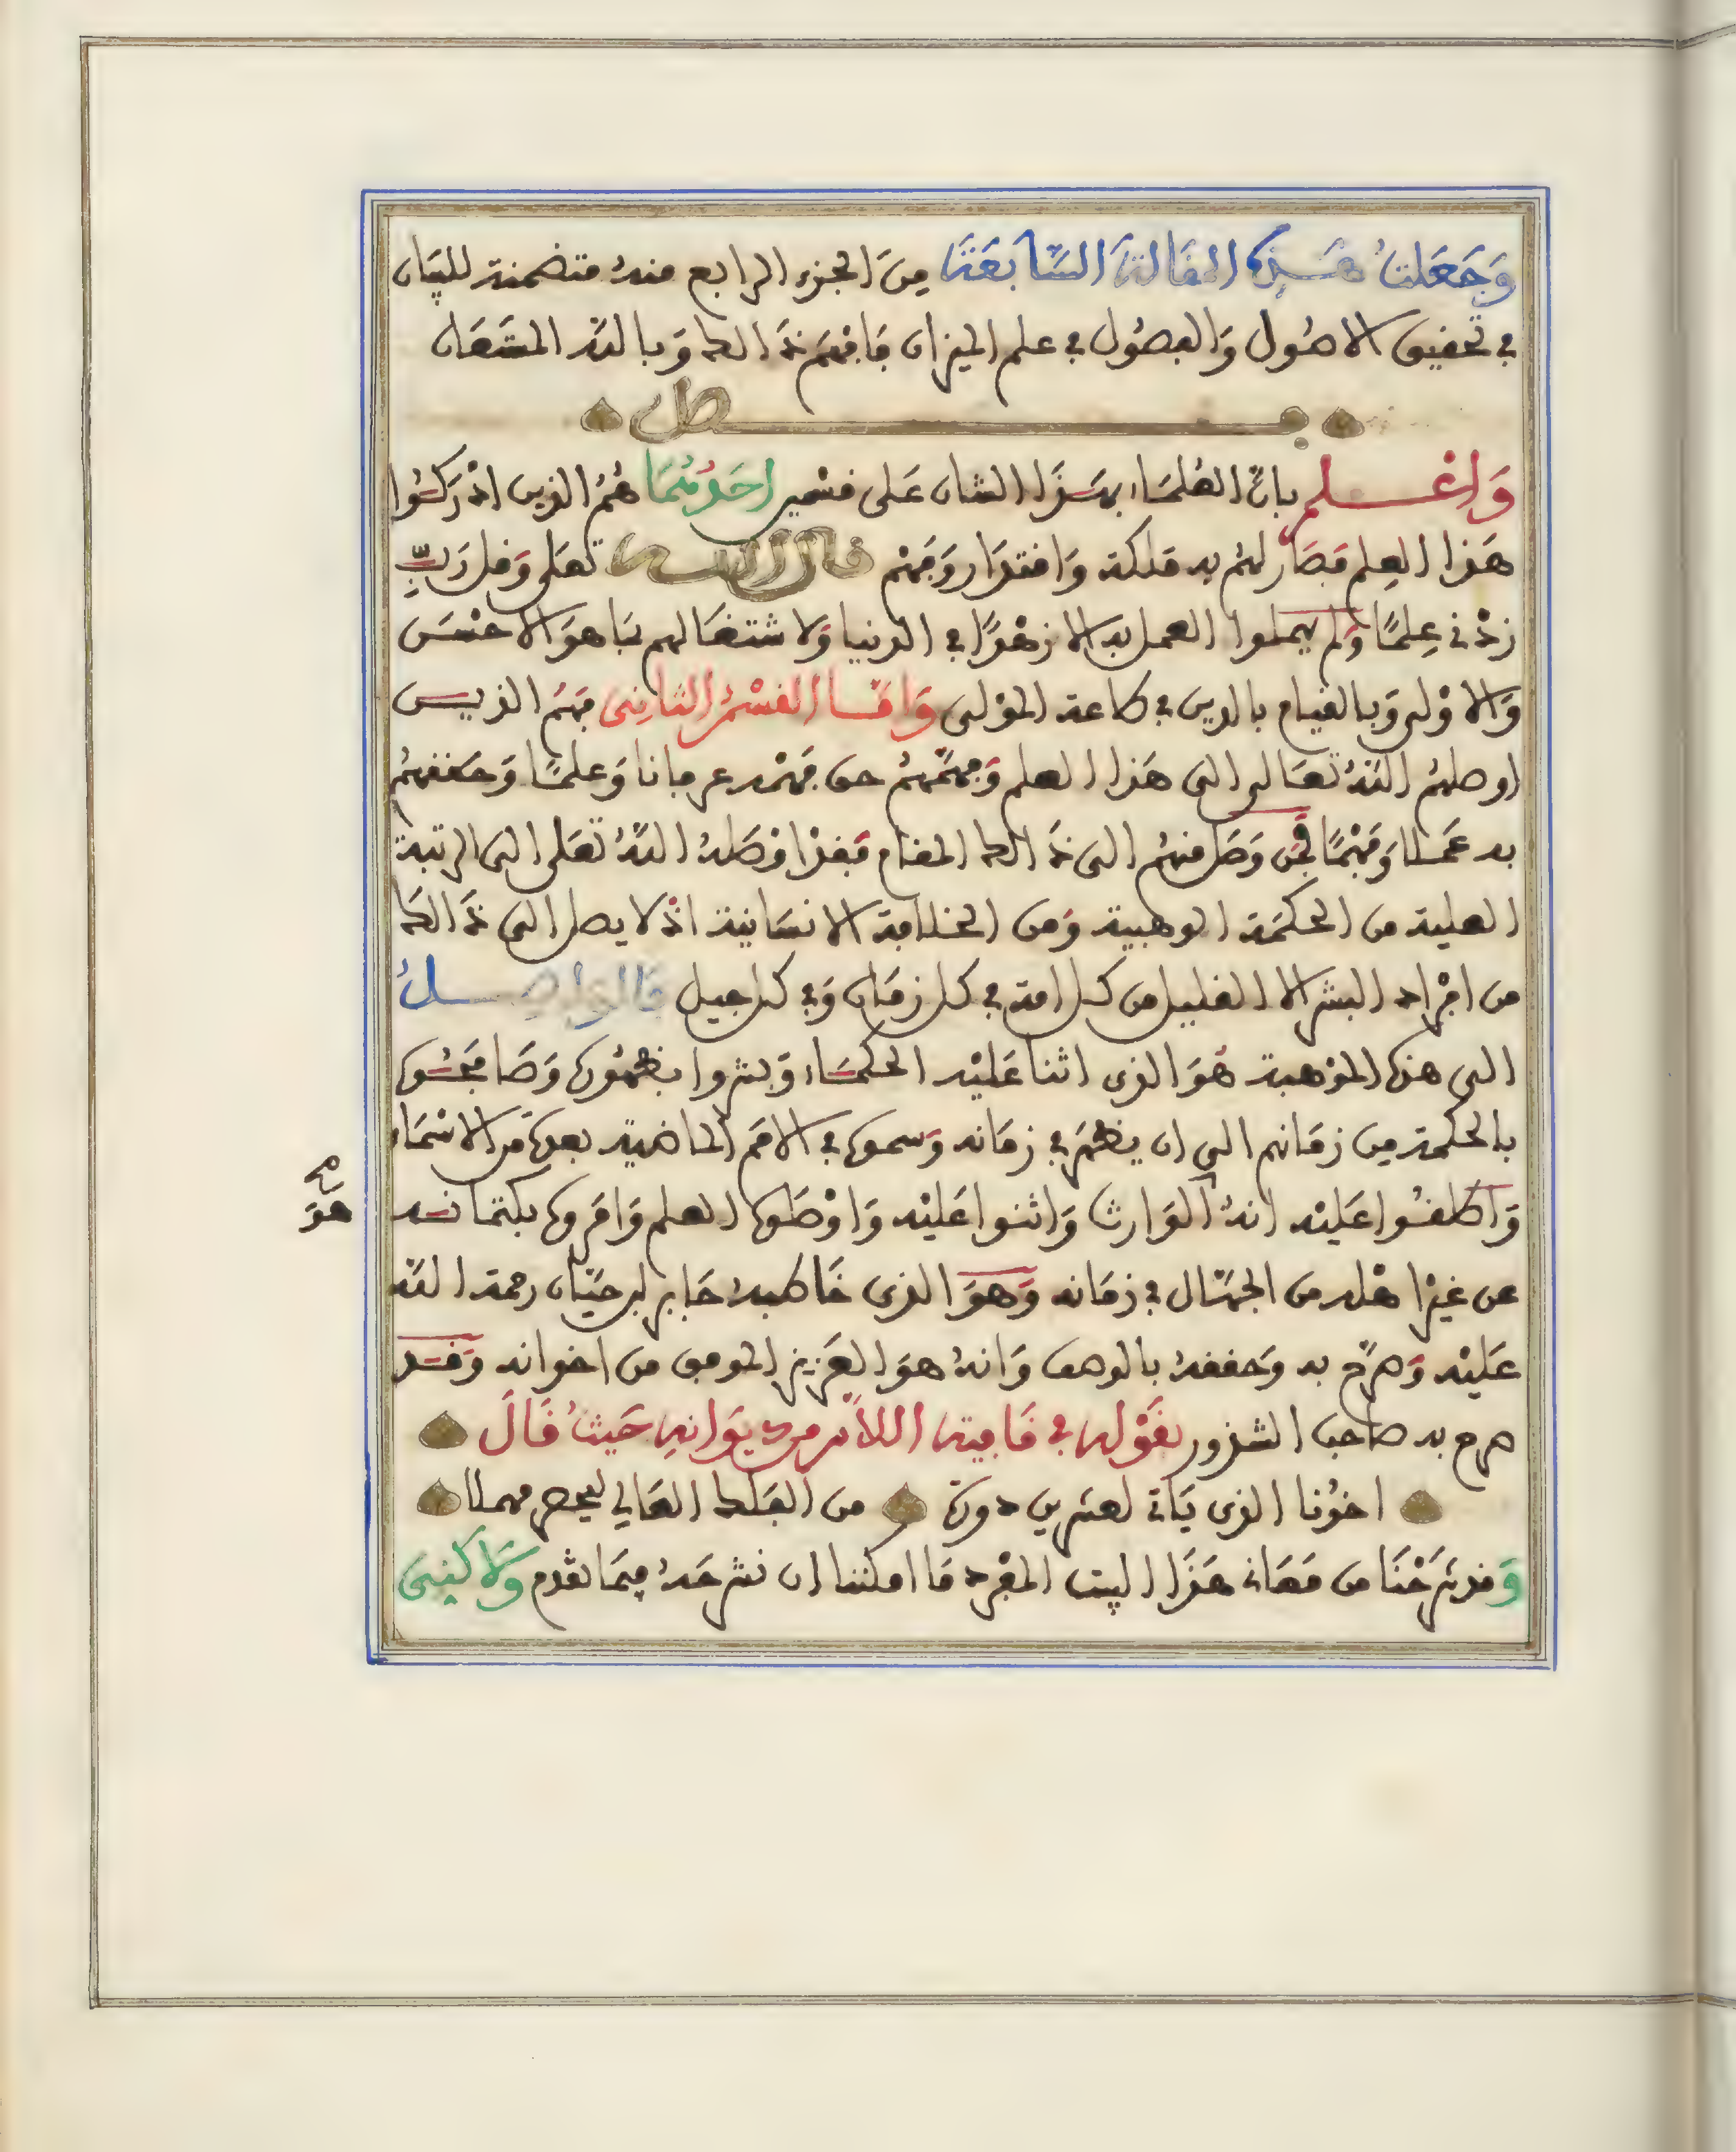 وَجَعَلتُ هَذِهِ المقَالَةَ السَّابعَةَ مِنَ الجزء الرابع منهُ متضمنة للبيَان
في تحقيق الاصُول وَالفصُول في علم الميزان فَافهَم ذَالك وَبالله المستَعَان
فصل
وَاعْلم بانّ العُلمَاء بهَذَا الشان عَلى قسْمين احَدُهُمَا هُمُ الذين ادْرَكُوا
هَذا العِلم فصَار لهُم به ملكة وَاقتدَار وَفهْم قال الله تعَلى وَقل رَبِّ
زدْني عِلمًا وَلم يعملوا العمل به الا زهْدًا في الدنيا وَلاشتغَالهم بمَا هوَ الاحسَن
وَالاوْلى وَبالقيام بالدين في طاعة الموْلى وَامّا القسْمُ الثانِى فهُمُ الذين
اوصلهُم اللهُ تعَالى الى هَذا العلم وَفهّمَهُم حق فهْمه عرفانا وَعلمًا وَحَققهُم
به عَملا وَفهْمًا فمَن وَصَل منهُم الى ذَالك المقام فقدْ اوْصَلهُ اللهُ تعَلى الى الرتبة
العلية من الحكمَة الوهبية وَمن الخلافة الانسَانية اذْ لا يصل الى ذَالك
من افْراد البشر الا القليل من كل امة في كل زمَان وَفي كل جيل فَالواصلُ
الى هذه الموْهبة هُوَ الذي اثنا عَليْه الحكمَاء وَبشروا بظهُوره وَصَافحُوه
بالحكمة مِن زمَانهم الى ان يظهَر في زمَانه وَسموه في الامَم الماضية بعدة مَن الاسْمَاء
وَاطلقُوا عَليْه انهُ الوَارث وَاثنوا عَليْه وَاوْصَوه العلم وَامَروه بكتمانه
هوَ صح
عن غيْر اهْله من الجهّال في زمَانه وَهوَ الذي خَاطبهُ جَابر ابن حيّان رحمة الله
عَليْه وَصرّح به وَحققهُ بالوصف وَانهُ هوَ العَزيز الموفق من اخوانه وَقد
صرح به صاحب الشذور بقَوْله في قَافية اللام من ديوَانِهِ حَيثُ قَالَ
اخوُنا الذي يَاتي لعشرين دورَة من الفَلك العَالي ليحصر مهملا
وَقد شرَحْنَا من مَعَاني هَذَا البيت المفْرد مَا امكننا ان نشرحَهُ فيمَا تقدم وَلاكنِنى